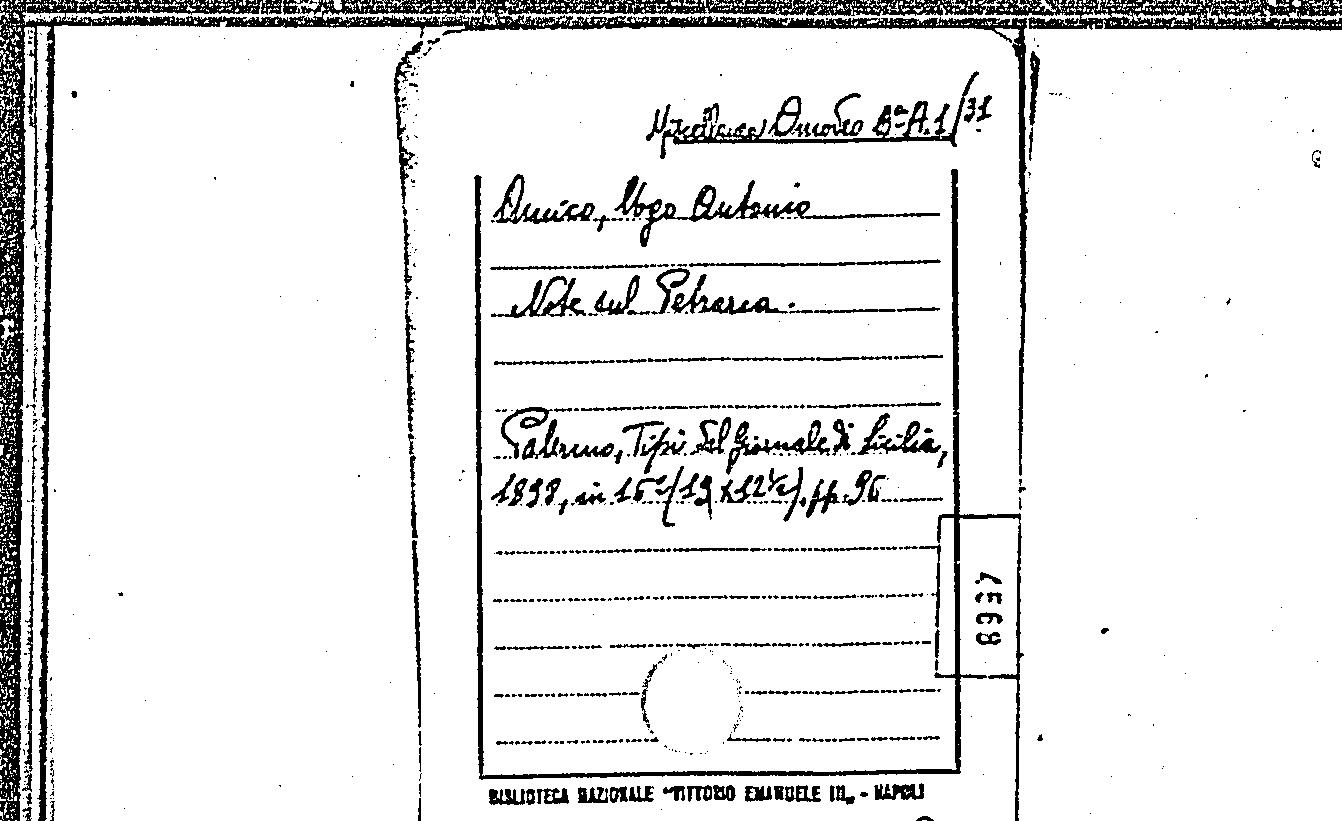 Miscellanea Amodeo Bª A.1/31
Amico, Ugo Antonio
Note sul Petrarca.
Palermo, Tipi del Giornale di Sicilia,
1898, in 16º (19 x 12½), pp. 96
8997
BIBLIOTECA NAZIONALE "VITTORIO EMANUELE III„ - NAPOLI